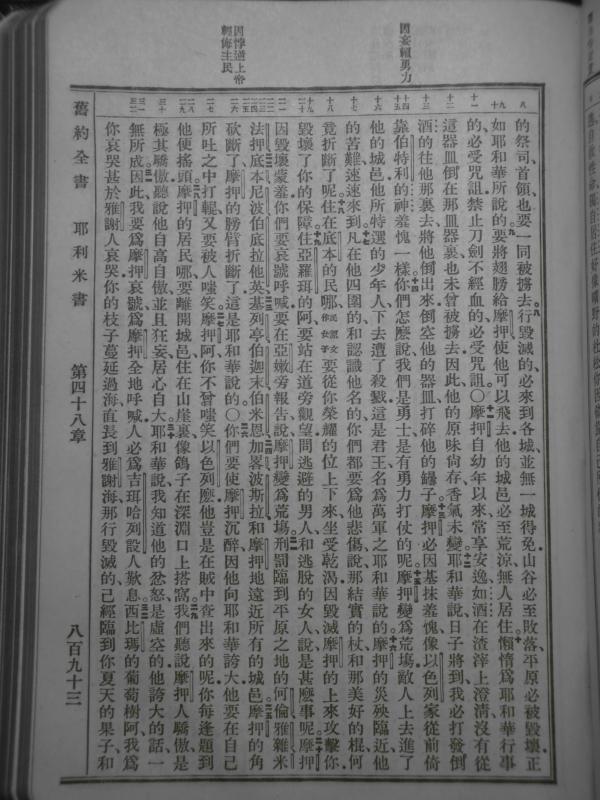 因妄賴勇力
因悖逆上帝
輕侮主民
的祭司首領也要一同被擄去行毀滅的必來到各城並無一城得免山谷必至敗落平原必被毀壞正
如耶和華所說的要將翅膀給摩押使他可以飛去他的城邑必至荒涼無人居住懶惰爲耶和華行事
的必受咒詛禁止刀劍不經血的必受咒詛〇摩押自幼年以來常享安逸如酒在渣滓上澄清沒有從
這器皿倒在那皿器裏也未曾被擄去因此他的原味尙存香氣未變耶和華說日子將到我必打發倒
酒的往他那裏去將他倒出來倒空他的器皿打碎他的罎子摩押必因基抹羞愧像以色列家從前倚
靠伯特利的神羞愧一樣你們怎麽說我們是勇士是有勇力打仗的呢摩押變爲荒塲敵人上去進了
他的城邑他所特選的少年人下去遭了殺戮這是君王名爲萬軍之耶和華說的摩押的災殃臨近他
的苦難速速來到凡在他四圍的和認識他名的你們都要爲他悲傷說那結實的杖和那美好的棍何
竟折斷了呢住在底本的民哪要從你榮耀的位上下來坐受乾渴因毀滅摩押的上來攻擊你
毀壞了你的保障住亞羅珥的阿要站在道旁觀望問逃避的男人和逃脫的女人說是甚麽事呢摩押
因毀壞蒙羞你們要哀號呼喊要在亞嫩旁報告說摩押變爲荒塲刑罰臨到平原之地的何倫雅雜米
法押底本尼波伯低拉他英基列亭伯迦末伯米恩加畧波斯拉和摩押地遠近所有的城邑摩押的角
砍斷了摩押的膀臂折斷了這是耶和華說的〇你們要使摩押沉醉因他向耶和華誇大他要在自己
所吐之中打輥又要被人嗤笑摩押阿你不曾嗤笑以色列麽他豈是在賊中查出來的呢你每逢題到
他便搖頭摩押的居民哪要離開城邑住在山崖裏像鴿子在深淵口上搭窩我們聽說摩押人驕傲是
極其驕傲聽說他自高自傲並且狂妄居心自大耶和華說我知道他的忿怒是虛空的他誇大的話一
無所成因此我要爲摩押哀號爲摩押全地呼喊人必爲吉珥哈列設人歎息西比瑪的葡萄樹阿我爲
你哀哭甚於雅謝人哀哭你的枝子蔓延過海直長到雅謝海那行毀滅的已經臨到你夏天的果子和
舊約全書　耶利米書　第四十八章　八百九十三